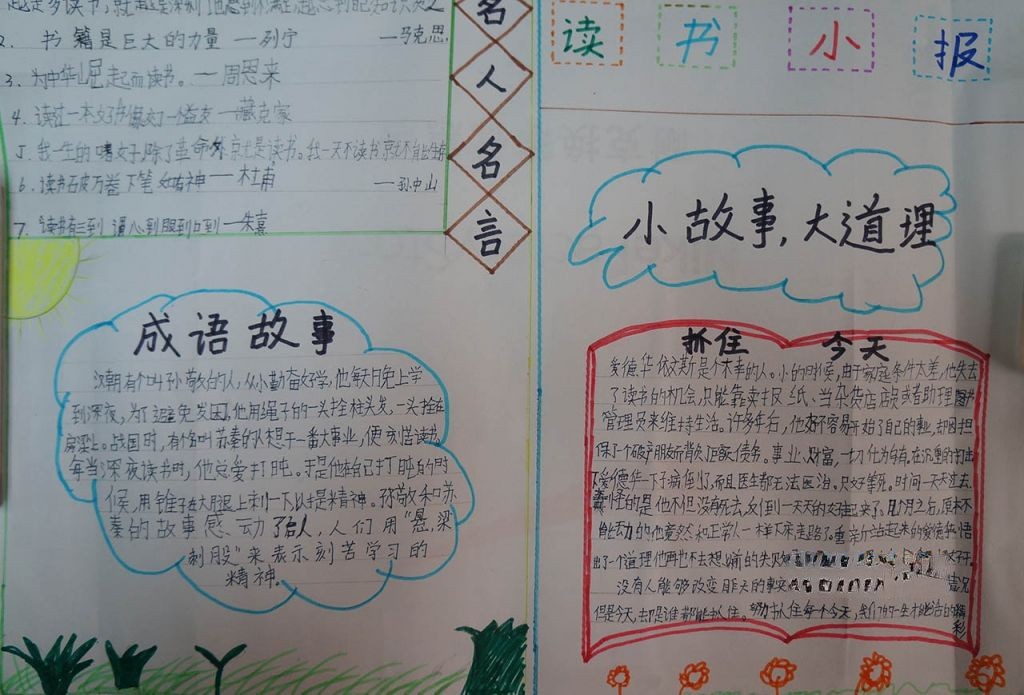 2. 书籍是巨大的力量 — 列宁
— 马克思
3. 为中华崛起而读书。— 周恩来
4. 读过一本好书像交一个益友 — 臧克家
5. 我一生的嗜好,除了革命外就是读书。我一天不读书就不能生存
— 孙中山
6. 读书破万卷下笔如有神 — 杜甫
7. 读书有三到 谓心到眼到口到 — 朱熹
名
人
名
言
成语故事
汉朝有个叫孙敬的人,从小勤奋好学,他每天日免上学
到深夜,为了避免发困,他用绳子的一头拴柱头发,一头拴在
房梁上。战国时,有个名叫苏秦的人想干一番大事业,便刻苦读书。
每当深夜读书时,他总爱打盹。于是他在自己打盹的时
候,用锥子在大腿上刺一下,以提精神。孙敬和苏
秦的故事感动了后人,人们用“悬梁
刺股”来表示刻苦学习的
精神。
读书小报
小故事,大道理
抓住今天
爱德华·依文斯是个不幸的人。小的时候,由于家庭条件太差,他失去
了读书的机会,只能靠卖报纸、当杂货店店员或者助理图书
管理员来维持生活。许多年后,他好不容易开始了自己的事业,却因担
保了个破产朋友而背负巨额债务。事业、财富,一切化为乌有。在沉重的打击
下爱德华一下子病倒了,而且医生都无法医治。只好等死。时间一天天过去,
的是他不但没有死去,反倒一天天的好起来了。几个月之后,原本不
能活动的他竟然和正常人一样下来走路了。重新站起来的爱德华悟
出了一个道理他再也不去想以前的失败
没有人能够改变昨天的事实
但是今天,却是谁都能抓住。努力抓住每个今天,我们的一生才能活的精彩